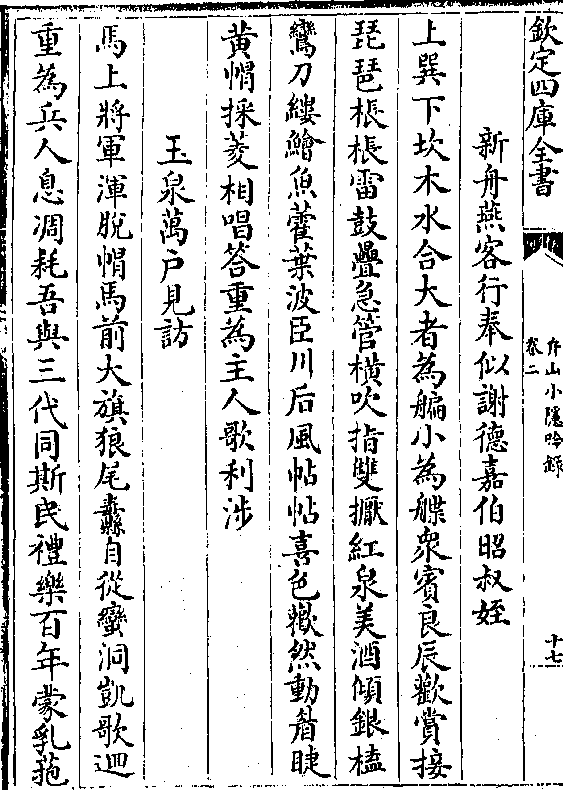 欽定四庫全書
弁山小隱吟錄
卷二
十七
新舟燕客行奉似謝德嘉伯昭叔姪
上巽下坎木水合大者為艑小為艓衆賓良辰歡賞接
琵琶棖棖雷鼓疊急管橫吹指雙擫紅泉美酒傾銀榼
鸞刀縷鱠魚藿葉波臣川后風帖帖喜色歡然動眉睫
黄帽採菱相唱答重為主人歌利涉
玉泉萬户見訪
馬上將軍渾脫帽馬前大旗狼尾纛自從蠻洞凱歌迴
重為兵人息凋耗吾與三代同斯民禮樂百年蒙乳菢